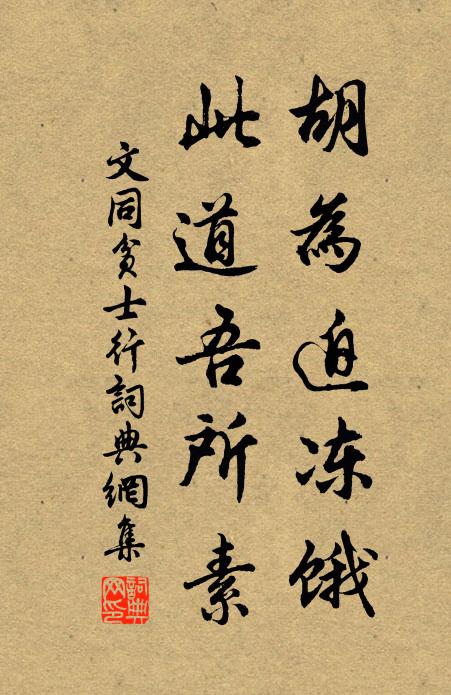 胡為迫凍餓
此道吾所素
文同貧士行詞典網集
詞典網印